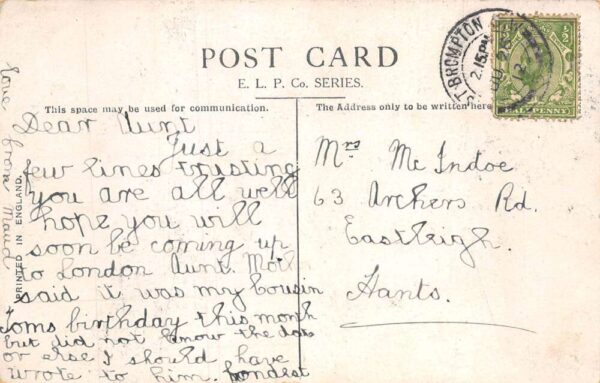 POST CARD
E. L. P. Co. SERIES.
This space may be used for communication.
The Address only to be written here
PRINTED IN ENGLAND.
Dear Aunt
Just a
few lines trusting
you are all well
hope you will
soon be coming up
to London Aunt.
said it was my Cousin
Toms birthday this month
but did not know the date
or else I should have
wrote to him. fondest
love from Maud
Mrs Mc Indoe
63 Archers Rd.
Eastleigh.
Hants.
BROMPTON
2.15 PM
12